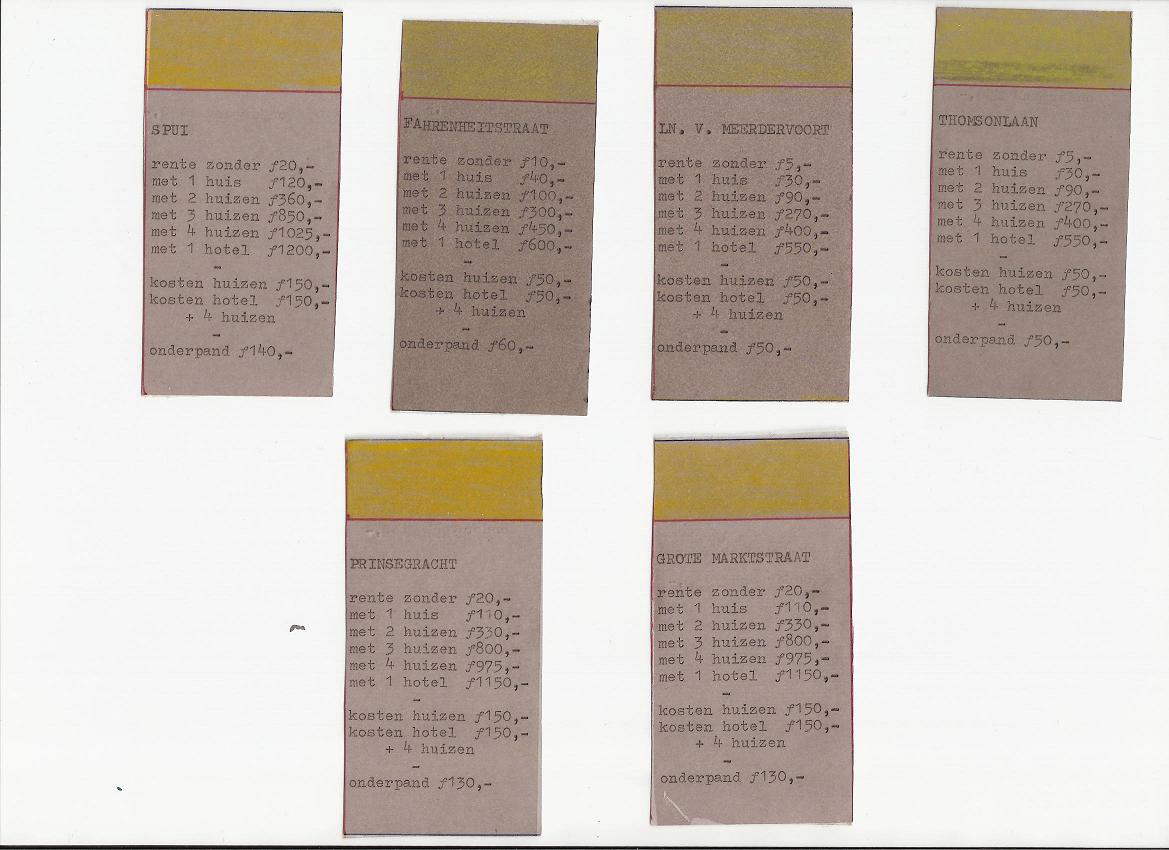 SPUI
rente zonder ƒ20,-
met 1 huis ƒ120,-
met 2 huizen ƒ360,-
met 3 huizen ƒ850,-
met 4 huizen ƒ1025,-
met 1 hotel ƒ1200,-
-
kosten huizen ƒ150,-
kosten hotel ƒ150,-
+ 4 huizen
-
onderpand ƒ140,-
FAHRENHEITSTRAAT
rente zonder ƒ10,-
met 1 huis ƒ40,-
met 2 huizen ƒ100,-
met 3 huizen ƒ300,-
met 4 huizen ƒ450,-
met 1 hotel ƒ600,-
-
kosten huizen ƒ50,-
kosten hotel ƒ50,-
+ 4 huizen
-
onderpand ƒ60,-
LN. V. MEERDERVOORT
rente zonder ƒ5,-
met 1 huis ƒ30,-
met 2 huizen ƒ90,-
met 3 huizen ƒ270,-
met 4 huizen ƒ400,-
met 1 hotel ƒ550,-
-
kosten huizen ƒ50,-
kosten hotel ƒ50,-
+ 4 huizen
-
onderpand ƒ50,-
THOMSONLAAN
rente zonder ƒ5,-
met 1 huis ƒ30,-
met 2 huizen ƒ90,-
met 3 huizen ƒ270,-
met 4 huizen ƒ400,-
met 1 hotel ƒ550,-
-
kosten huizen ƒ50,-
kosten hotel ƒ50,-
+ 4 huizen
-
onderpand ƒ50,-
PRINSEGRACHT
rente zonder ƒ20,-
met 1 huis ƒ110,-
met 2 huizen ƒ330,-
met 3 huizen ƒ800,-
met 4 huizen ƒ975,-
met 1 hotel ƒ1150,-
-
kosten huizen ƒ150,-
kosten hotel ƒ150,-
+ 4 huizen
-
onderpand ƒ130,-
GROTE MARKTSTRAAT
rente zonder ƒ20,-
met 1 huis ƒ110,-
met 2 huizen ƒ330,-
met 3 huizen ƒ800,-
met 4 huizen ƒ975,-
met 1 hotel ƒ1150,-
-
kosten huizen ƒ150,-
kosten hotel ƒ150,-
+ 4 huizen
-
onderpand ƒ130,-